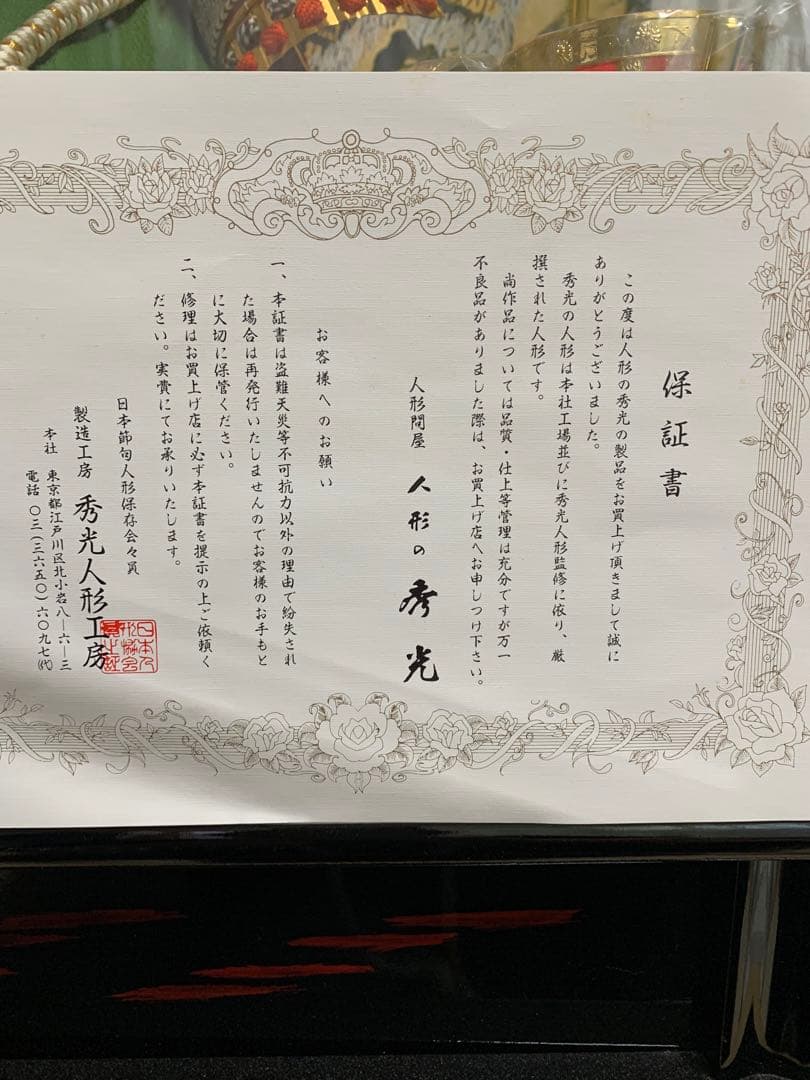 保証書
この度は人形の秀光の製品をお買上げ頂きまして誠に
ありがとうございました。
秀光の人形は本社工場並びに秀光人形監修に依り、厳
撰された人形です。
尚作品については品質・仕上等管理は充分ですが万一
不良品がありました際は、お買上げ店へお申しつけ下さい。
人形問屋 人形の秀光
お客様へのお願い
一、本証書は盗難天災等不可抗力以外の理由で紛失され
た場合は再発行いたしませんのでお客様のお手もと
に大切に保管ください。
二、修理はお買上げ店に必ず本証書を提示の上ご依頼く
ださい。実費にてお承りいたします。
日本節句人形保存会々員
製造工房 秀光人形工房
本社 東京都江戸川区北小岩八ー六ー三
電話 〇三(三六五〇)六〇九七(代)